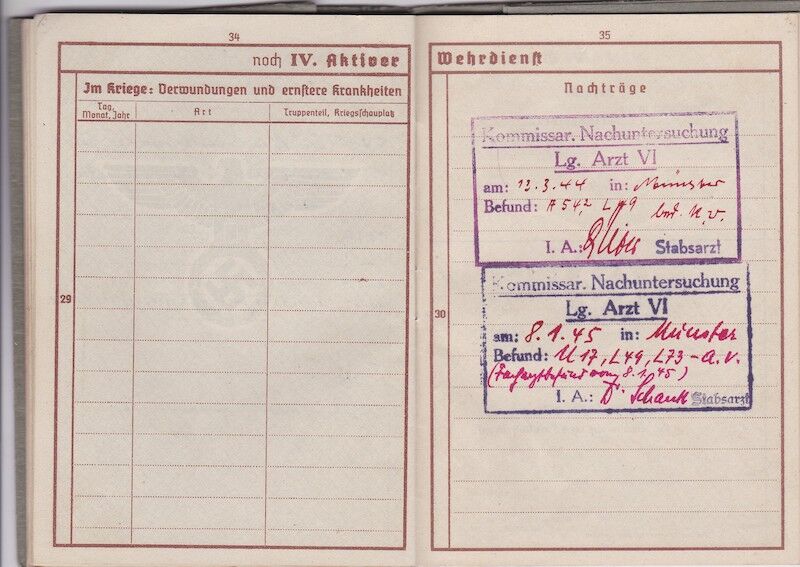 34
noch IV. Aktiver
Im Kriege: Verwundungen und ernstere Krankheiten
Tag, Monat, Jahr
Art
Truppenteil, Kriegsschauplatz
29
35
Wehrdienst
Nachträge
30
Kommissar. Nachuntersuchung
Lg. Arzt VI
am: 13.3.44 in: Münster
Befund: A 54,2, L 49 bed. K.v.
I. A.: Stabsarzt
Kommissar. Nachuntersuchung
Lg. Arzt VI
am: 8.1.45 in: Münster
Befund: U 17, L 49, L 73 - a.v.
(Facharztbefund vom 8.1.45)
I. A.: Dr. Schank Stabsarzt